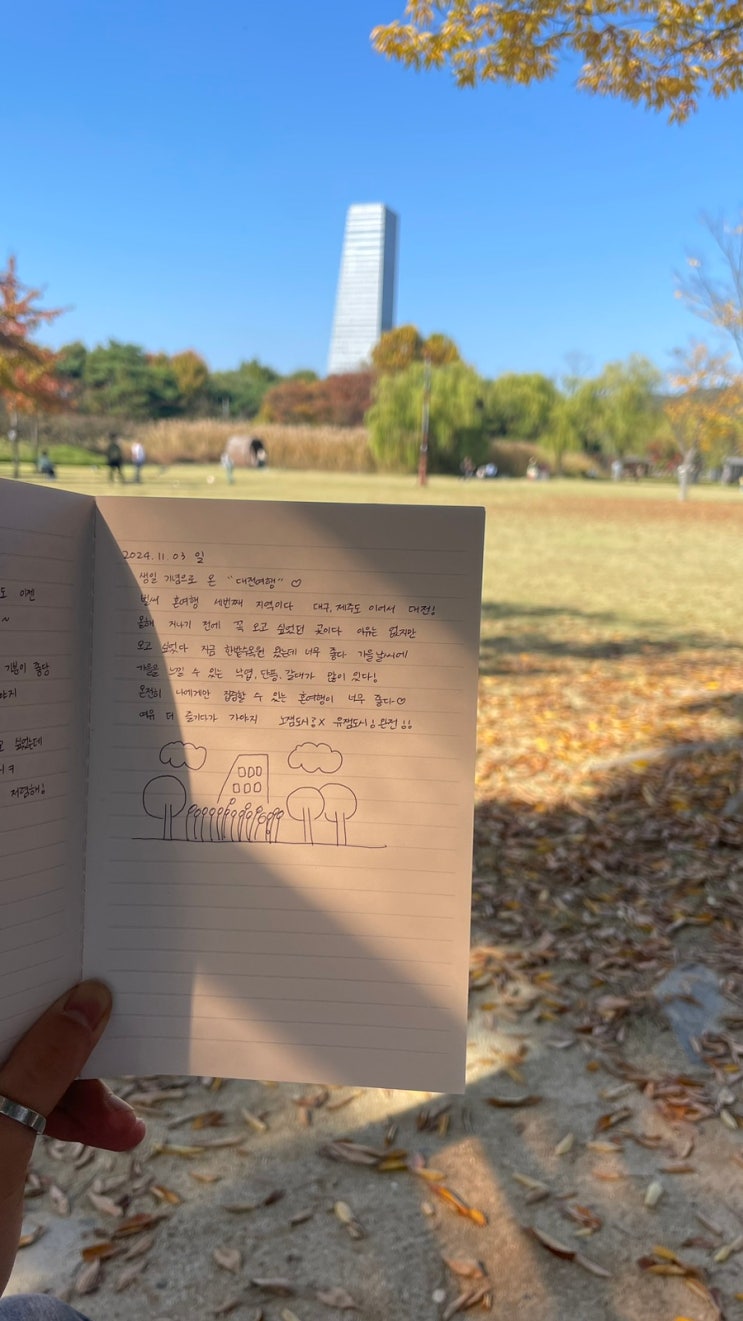 도 이젠
~
기분이 좋당
야지
고 싶었는데
ㅋ
저렴해!
2024. 11. 03 일
생일 기념으로 온 "대전여행" ♡
벌써 혼여행 세번째 지역이다 대구, 제주도 이어서 대전!
올해 가기 전에 꼭 오고 싶었던 곳이다 이유는 없지만
오고 싶었다 지금 한밭수목원 왔는데 너무 좋다 가을날씨에
가을을 느낄 수 있는 낙엽, 단풍, 갈대가 많이 있다!
온전히 나에게만 집중할 수 있는 혼여행이 너무 좋다♡
여유 더 즐기다가 가야지 노잼도시 x 유잼도시! 완전!!